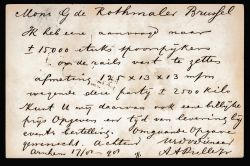 Mons G de Rothmaler Brussel
Ik heb eene aanvraag naar
± 15000 stuks spoorspijkers
op de rails vast te zetten
afmeting 125 x 13 x 13 m/m
wegende deze partij ± 2500 kilo
Kunt U mij daarvan ook eene billijke
prijs Opgeven en tijd van levering bij
events bestelling. Omgaande Opgave
gewenscht. Achtend
Arnhem 17/10 - 90